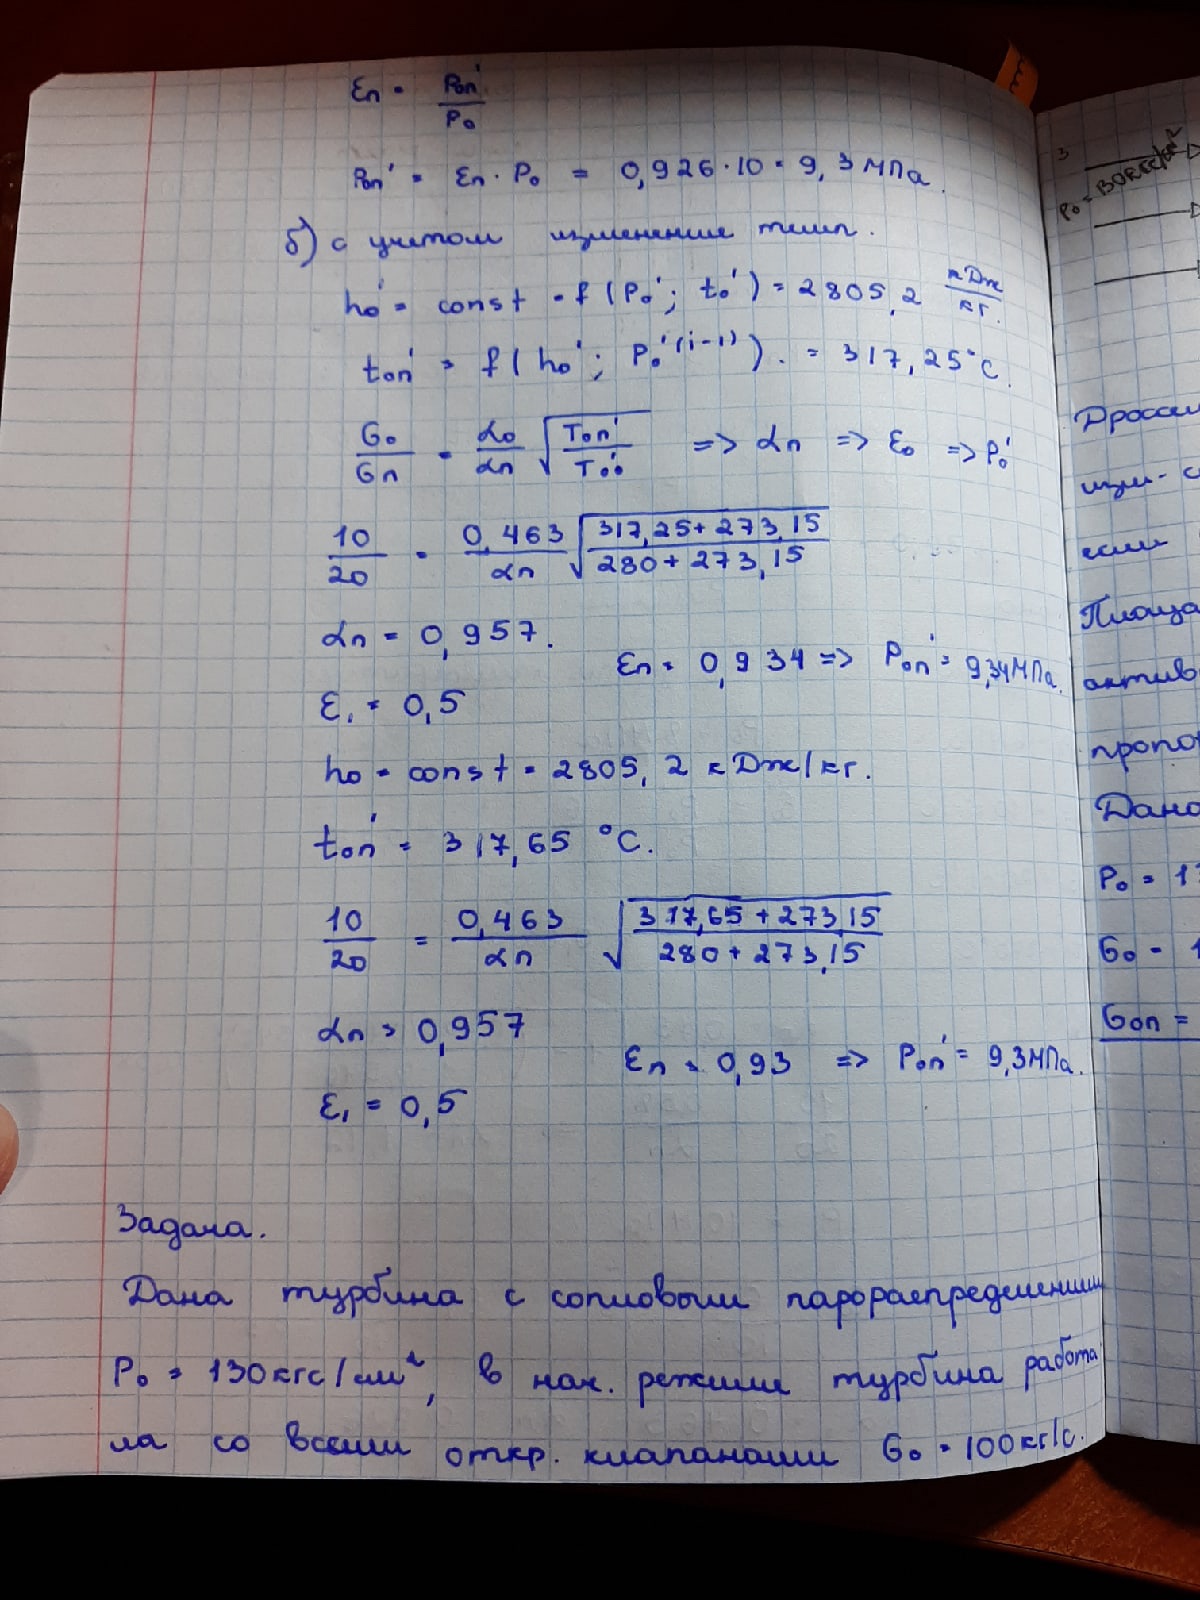 εп = Pоп' / P₀
Pоп' = εп · P₀ = 0,926 · 10 = 9,3 МПа.
б) с учетом изменение темп.
h₀' = const = f (P₀'; t₀') = 2805,2 кДж/кг.
tоп' = f (h₀'; P₀'⁽ⁱ⁻¹⁾). = 317,25°C.
G₀/Gп = α₀/αп √(Tоп'/Tоо') => αп => ε₀ => P₀'
10/20 = 0,463/αп √((317,25 + 273,15)/(280 + 273,15))
αп = 0,957.
εп = 0,934 => Pоп' = 9,34 МПа.
ε₁ = 0,5
h₀ = const = 2805,2 кДж/кг.
tоп' = 317,65 °C.
10/20 = 0,463/αп √((317,65 + 273,15)/(280 + 273,15))
αп = 0,957
εп = 0,93 => Pоп' = 9,3 МПа.
ε₁ = 0,5
Задача.
Дана турбина с сопловым парораспределением
P₀ = 130 кгс/см², в нач. режиме турбина работа
ла со всеми откр. клапанами G₀ = 100 кг/с.
3
Дроссел
изм-
если
Площа
актив
пропор
Дано
P₀ = 1
G₀ = 1
Gоп =